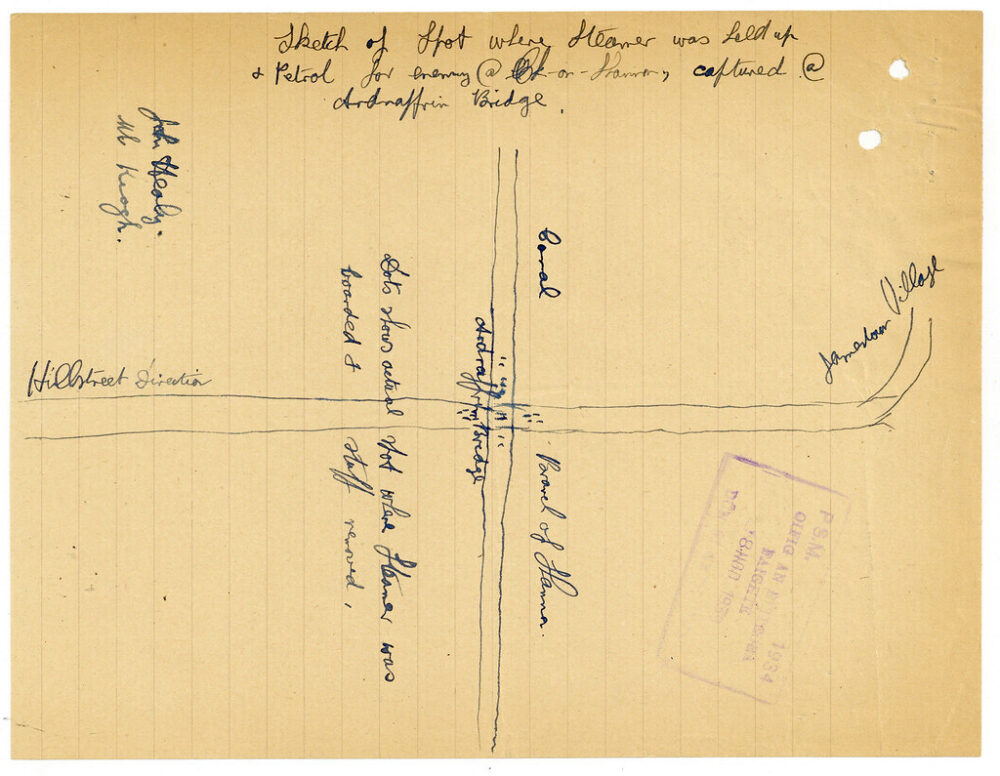 Sketch of Spot where Steamer was held up
& Petrol for enemy @ Ck-on-Shannon, captured @
Ardnaffrin Bridge.
John Healy.
Ml Keogh.
Canal
Jamestown Village
Hillstreet Direction
Ardnaffrin Bridge
Dots shows actual spot where Steamer was
boarded & stuff removed.
of Shannon.
P.S.M.
OIFIG AN 1934